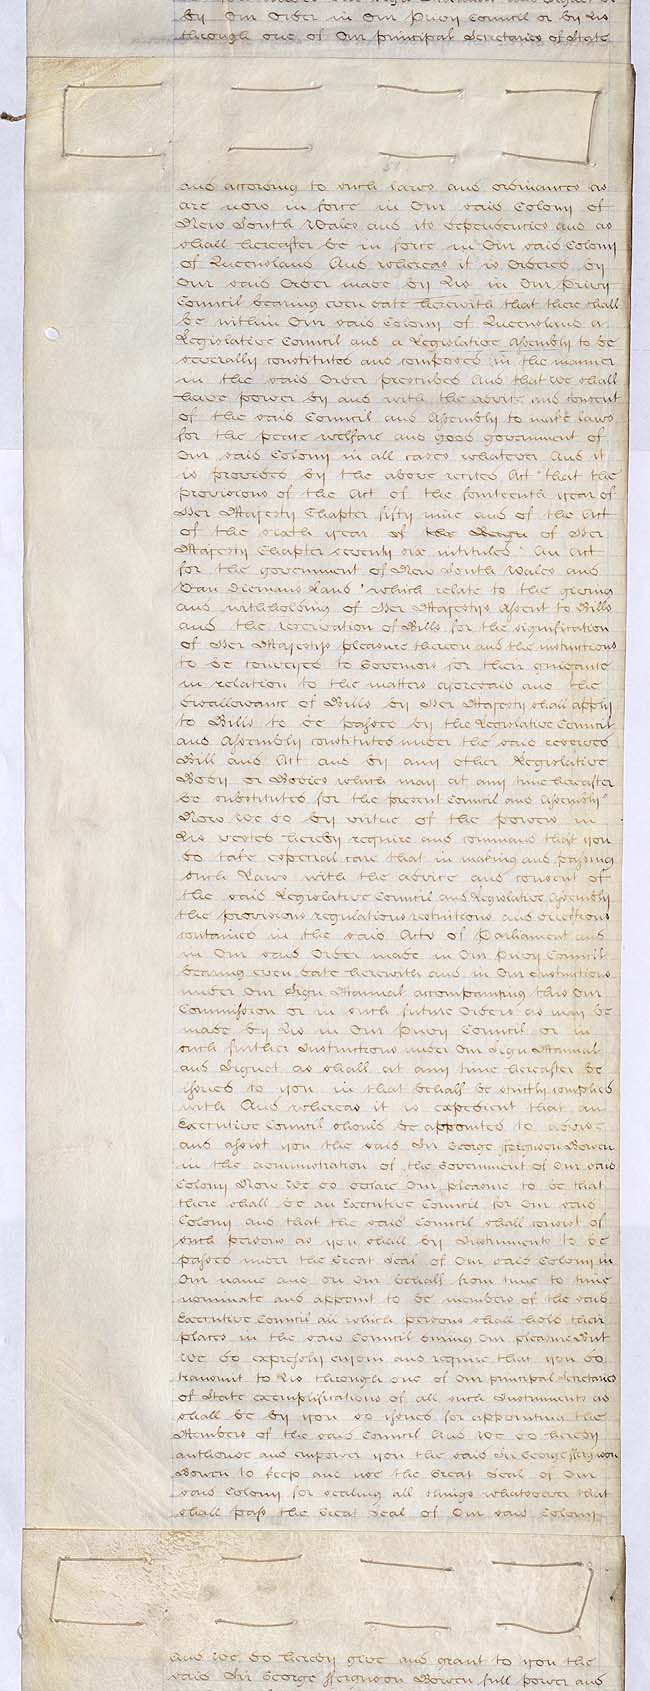 by Our Order in Our Privy Council or by Us
through one of Our principal Secretaries of State
and according to such laws and ordinances as
are now in force in Our said Colony of
New South Wales and its dependencies and as
shall hereafter be in force in Our said Colony
of Queensland And whereas it is Ordered by
Our said Order made by Us in Our Privy
Council bearing even date herewith that there shall
be within Our said Colony of Queensland a
Legislative Council and a Legislative Assembly to be
severally constituted and composed in the manner
in the said Order prescribed And that we shall
have power by and with the advice and consent
of the said Council and Assembly to make laws
for the peace welfare and good government of
Our said Colony in all cases whatever And it
is provided by the above recited Act "that the
provisions of the Act of the fourteenth year of
Her Majesty Chapter fifty nine and of the Act
of the sixth year of the Reign of Her
Majesty Chapter seventy six intituled "An Act
for the government of New South Wales and
Van Diemans Land" which relate to the giving
and withholding of Her Majestys Assent to Bills
and the reservation of Bills for the signification
of Her Majestys pleasure thereon and the instructions
to be conveyed to Governors for their guidance
in relation to the matters aforesaid and the
disallowance of Bills by Her Majesty shall apply
to Bills to be passed by the Legislative Council
and Assembly constituted under the said reserved
Bill and Act and by any other Legislative
Body or Bodies which may at any time hereafter
be substituted for the present Council and Assembly"
Now We do by virtue of the powers in
Us vested hereby require and command that you
do take especial care that in making and passing
such Laws with the advice and consent of
the said Legislative Council and Legislative Assembly
the provisions regulations restrictions and directions
contained in the said Acts of Parliament and
in Our said Order made in Our Privy Council
bearing even date herewith and in Our Instructions
under Our Sign Manual accompanying this Our
Commission or in such future Orders as may be
made by Us in Our Privy Council or in
such further Instructions under Our Sign Manual
and Signet as shall at any time hereafter be
issued to you in that behalf be strictly complied
with And whereas it is expedient that an
Executive Council should be appointed to advise
and assist you the said Sir George Fferguson Bowen
in the administration of the Government of Our said
Colony Now We do declare Our pleasure to be that
there shall be an Executive Council for Our said
Colony and that the said Council shall consist of
such persons as you shall by Instruments to be
passed under the Great Seal of Our said Colony in
Our name and on Our behalf from time to time
nominate and appoint to be members of the said
Executive Council all which persons shall hold their
places in the said Council during Our pleasure But
We do expressly enjoin and require that you do
transmit to Us through one of Our principal Secretaries
of State exemplifications of all such Instruments as
shall be by you so issued for appointing the
Members of the said Council And We do hereby
authorise and empower you the said Sir George Fferguson
Bowen to keep and use the Great Seal of Our
said Colony for sealing all things whatsoever that
shall pass the Great Seal of Our said Colony
And We do hereby give and grant to you the
said Sir George Fferguson Bowen full power and